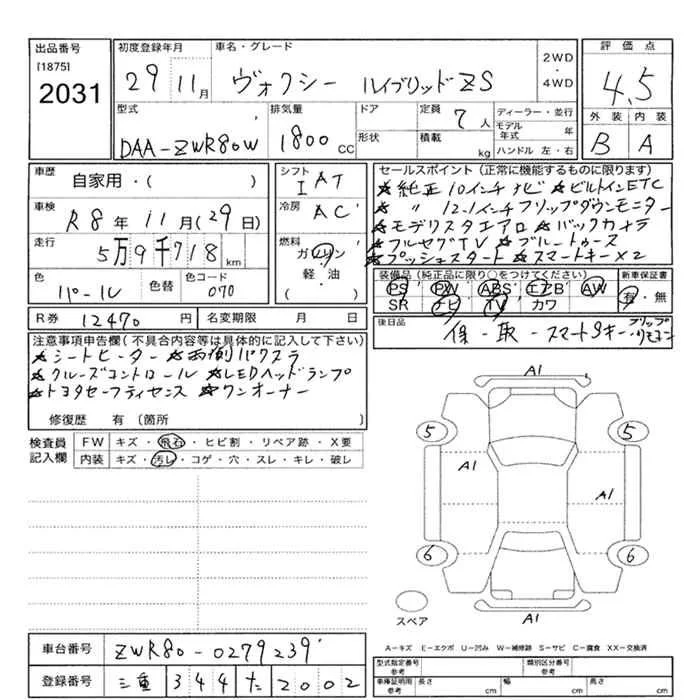 出品番号
[1875]
2031
初度登録年月
29 11月
車名・グレード
ヴォクシー ハイブリッドZS
2WD
・
4WD
評価点
4.5
外装 内装
B A
型式
DAA-ZWR80W
排気量
1800 CC
ドア
形状
定員 7人
積載 kg
ディーラー・並行
モデル年式 年
ハンドル 左・右
車歴
自家用・( )
車検
R8年 11月(29日)
走行
5万9千718km
色
パール
色替
色コード
070
シフト
IAT
冷房
AC
燃料
ガソリン
・軽・油
( )
セールスポイント(正常に機能するものに限ります)
★純正10インチナビ ★ビルトインETC
★ 〃 12.1インチフリップダウンモニター
★モデリスタエアロ ★バックカメラ
★フルセグTV ★ブルートゥース
★プッシュスタート ★スマートキー×2
装備品(純正品に限り○をつけてください)
PS PW ABS エアB AW
SR ナビ TV カワ
新車保証書
有・無
R券 12470円
名変期限 月 日
後日品
保-取-スマートSキー・フリップリモコン
注意事項申告欄(不具合内容等は具体的に記入して下さい)
★シートヒーター ★両側パワスラ
★クルーズコントロール ★LEDヘッドランプ
★トヨタセーフティセンス ★ワンオーナー
修復歴 有(箇所 )
検査員
記入欄
FW キズ・飛石・ヒビ割・リペア跡・X要
内装 キズ・汚レ・コゲ・穴・スレ・キレ・破レ
A1
5 5
A1
A1
6 6
A1
スペア
A-キズ E-エクボ U-凹み W-補修跡 S-サビ C-腐食 XX-交換済
車台番号 ZWR80-0279239
登録番号 三重 344 た 2002
型式指定番号
参考
類別区分番号
参考
車庫証明用
参考
長さ cm
幅 cm
高さ cm